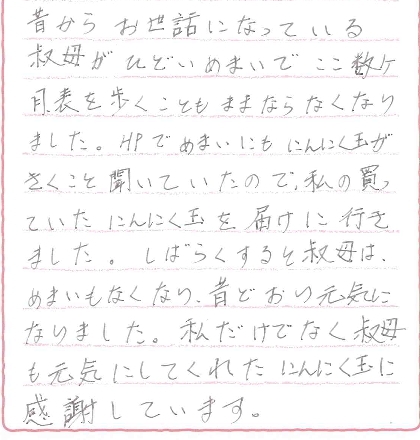 昔から お世話になっている
叔母が ひどいめまいで ここ数ヶ
月表を歩くこともままならなくなり
ました。HPでめまいにも にんにく玉が
きくこと聞いていたので、私の買っ
ていた にんにく玉を届けに行き
ました。しばらくすると叔母は、
めまいもなくなり、昔どおり元気に
なりました。私だけでなく叔母
も元気にしてくれた にんにく玉に
感謝しています。